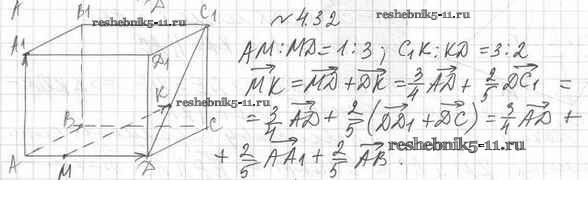 A B1 D C1
reshebnik5-11.ru
№432
reshebnik5-11.ru
A1 D1
AM:MD=1:3; C1K:KD=3:2
MK = MD + DK = 3/4 AD + 2/5 DC1 =
= 3/4 AD + 2/5 (DD1 + DC) = 3/4 AD +
+ 2/5 AA1 + 2/5 AB.
K
reshebnik5-11.ru
B C
A M D
reshebnik5-11.ru